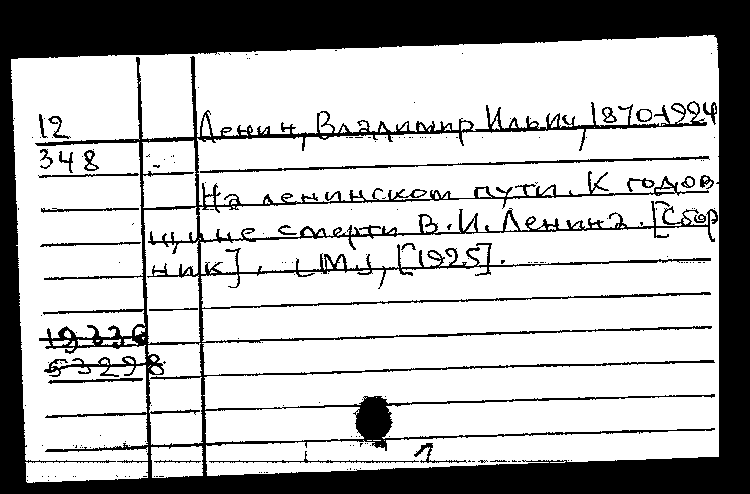 12
348
Ленин, Владимир Ильич, 1870-1924
На ленинском пути. К годов-
щине смерти В.И.Ленина. [Сбор
ник]. [М.], [1925].
19336
53298
л